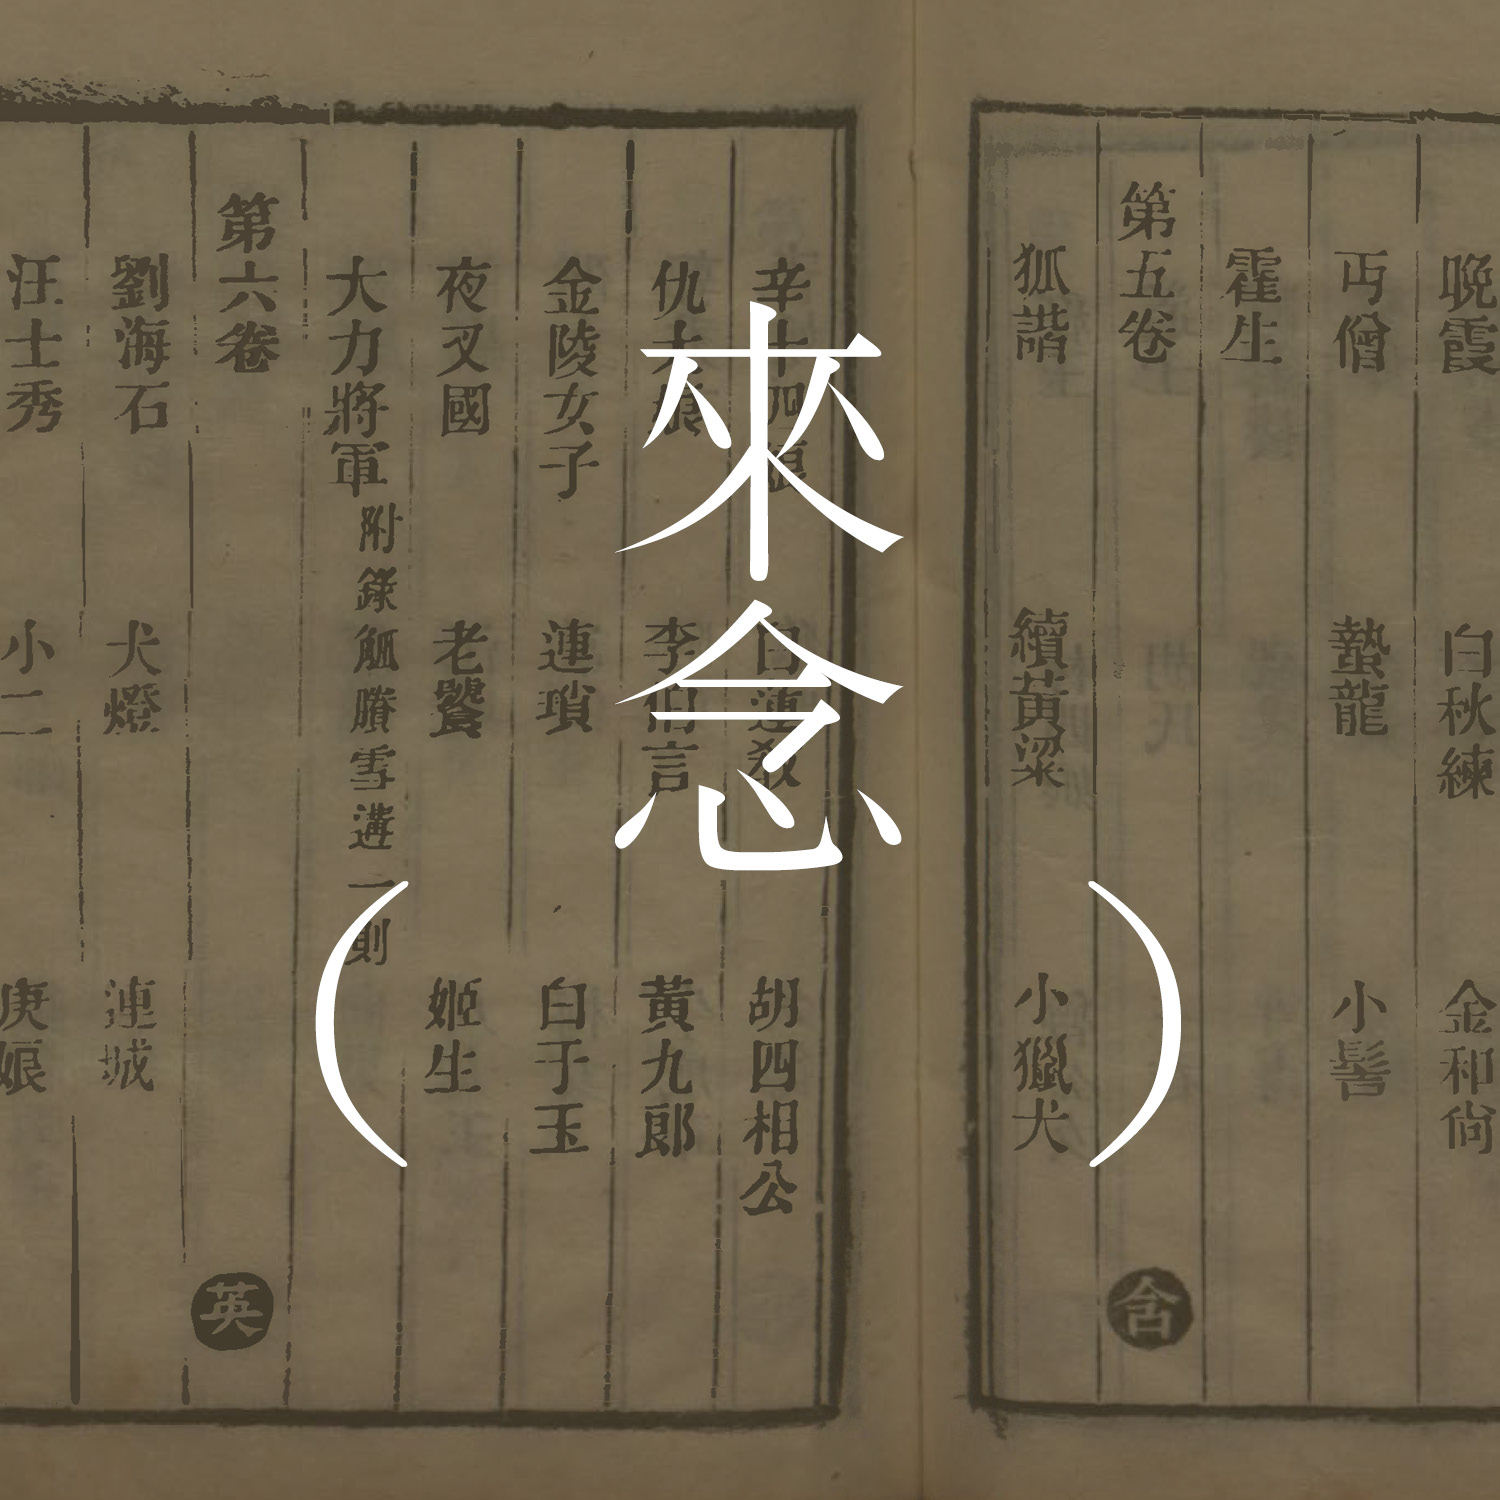 來念
(　)
晚霞　白秋練　金和尚
丐僧　蟄龍　小髻
霍生
第五卷　含
狐諧　續黃粱　小獵犬
辛十四娘　白蓮教　胡四相公
仇大娘　李伯言　黃九郎
金陵女子　連瑣　白于玉
夜叉國　老饕　姬生
大力將軍　附錄觚賸雪遘一則
第六卷　英
劉海石　犬燈　連城
汪士秀　小二　庚娘